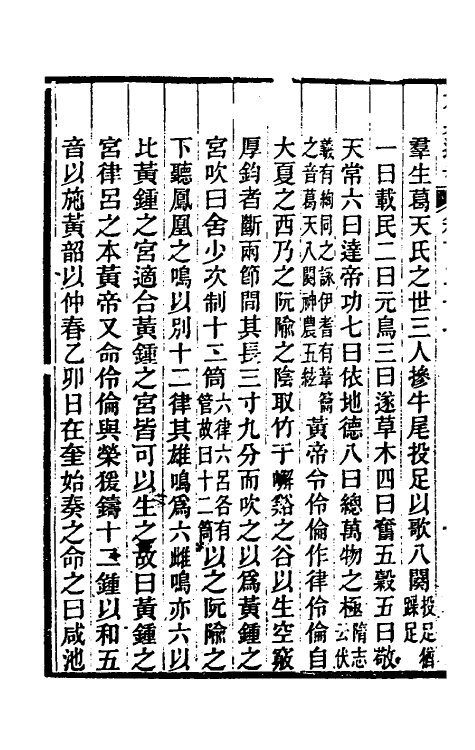 羣生葛天氏之世三人摻牛尾投足以歌八闋投足猶蹀足
一曰載民二曰元鳥三曰遂草木四曰奮五穀五曰敬
天常六曰達帝功七曰依地德八曰總萬物之極隋志云伏
羲有網罔之詠伊耆有葦籥之音葛天八闋神農五絃黃帝令伶倫作律伶倫自
大夏之西乃之阮隃之陰取竹于嶰谿之谷以生空竅
厚鈞者斷兩節間其長三寸九分而吹之以爲黃鍾之
宮吹曰舍少次制十二筒六律六呂各有管故曰十二筒以之阮隃之
下聽鳳凰之鳴以別十二律其雄鳴爲六雌鳴亦六以
比黃鍾之宮適合黃鍾之宮皆可以生之故曰黃鍾之
宮律呂之本黃帝又命伶倫與榮猨鑄十二鍾以和五
音以施黃韶以仲春乙卯日在奎始奏之命之曰咸池